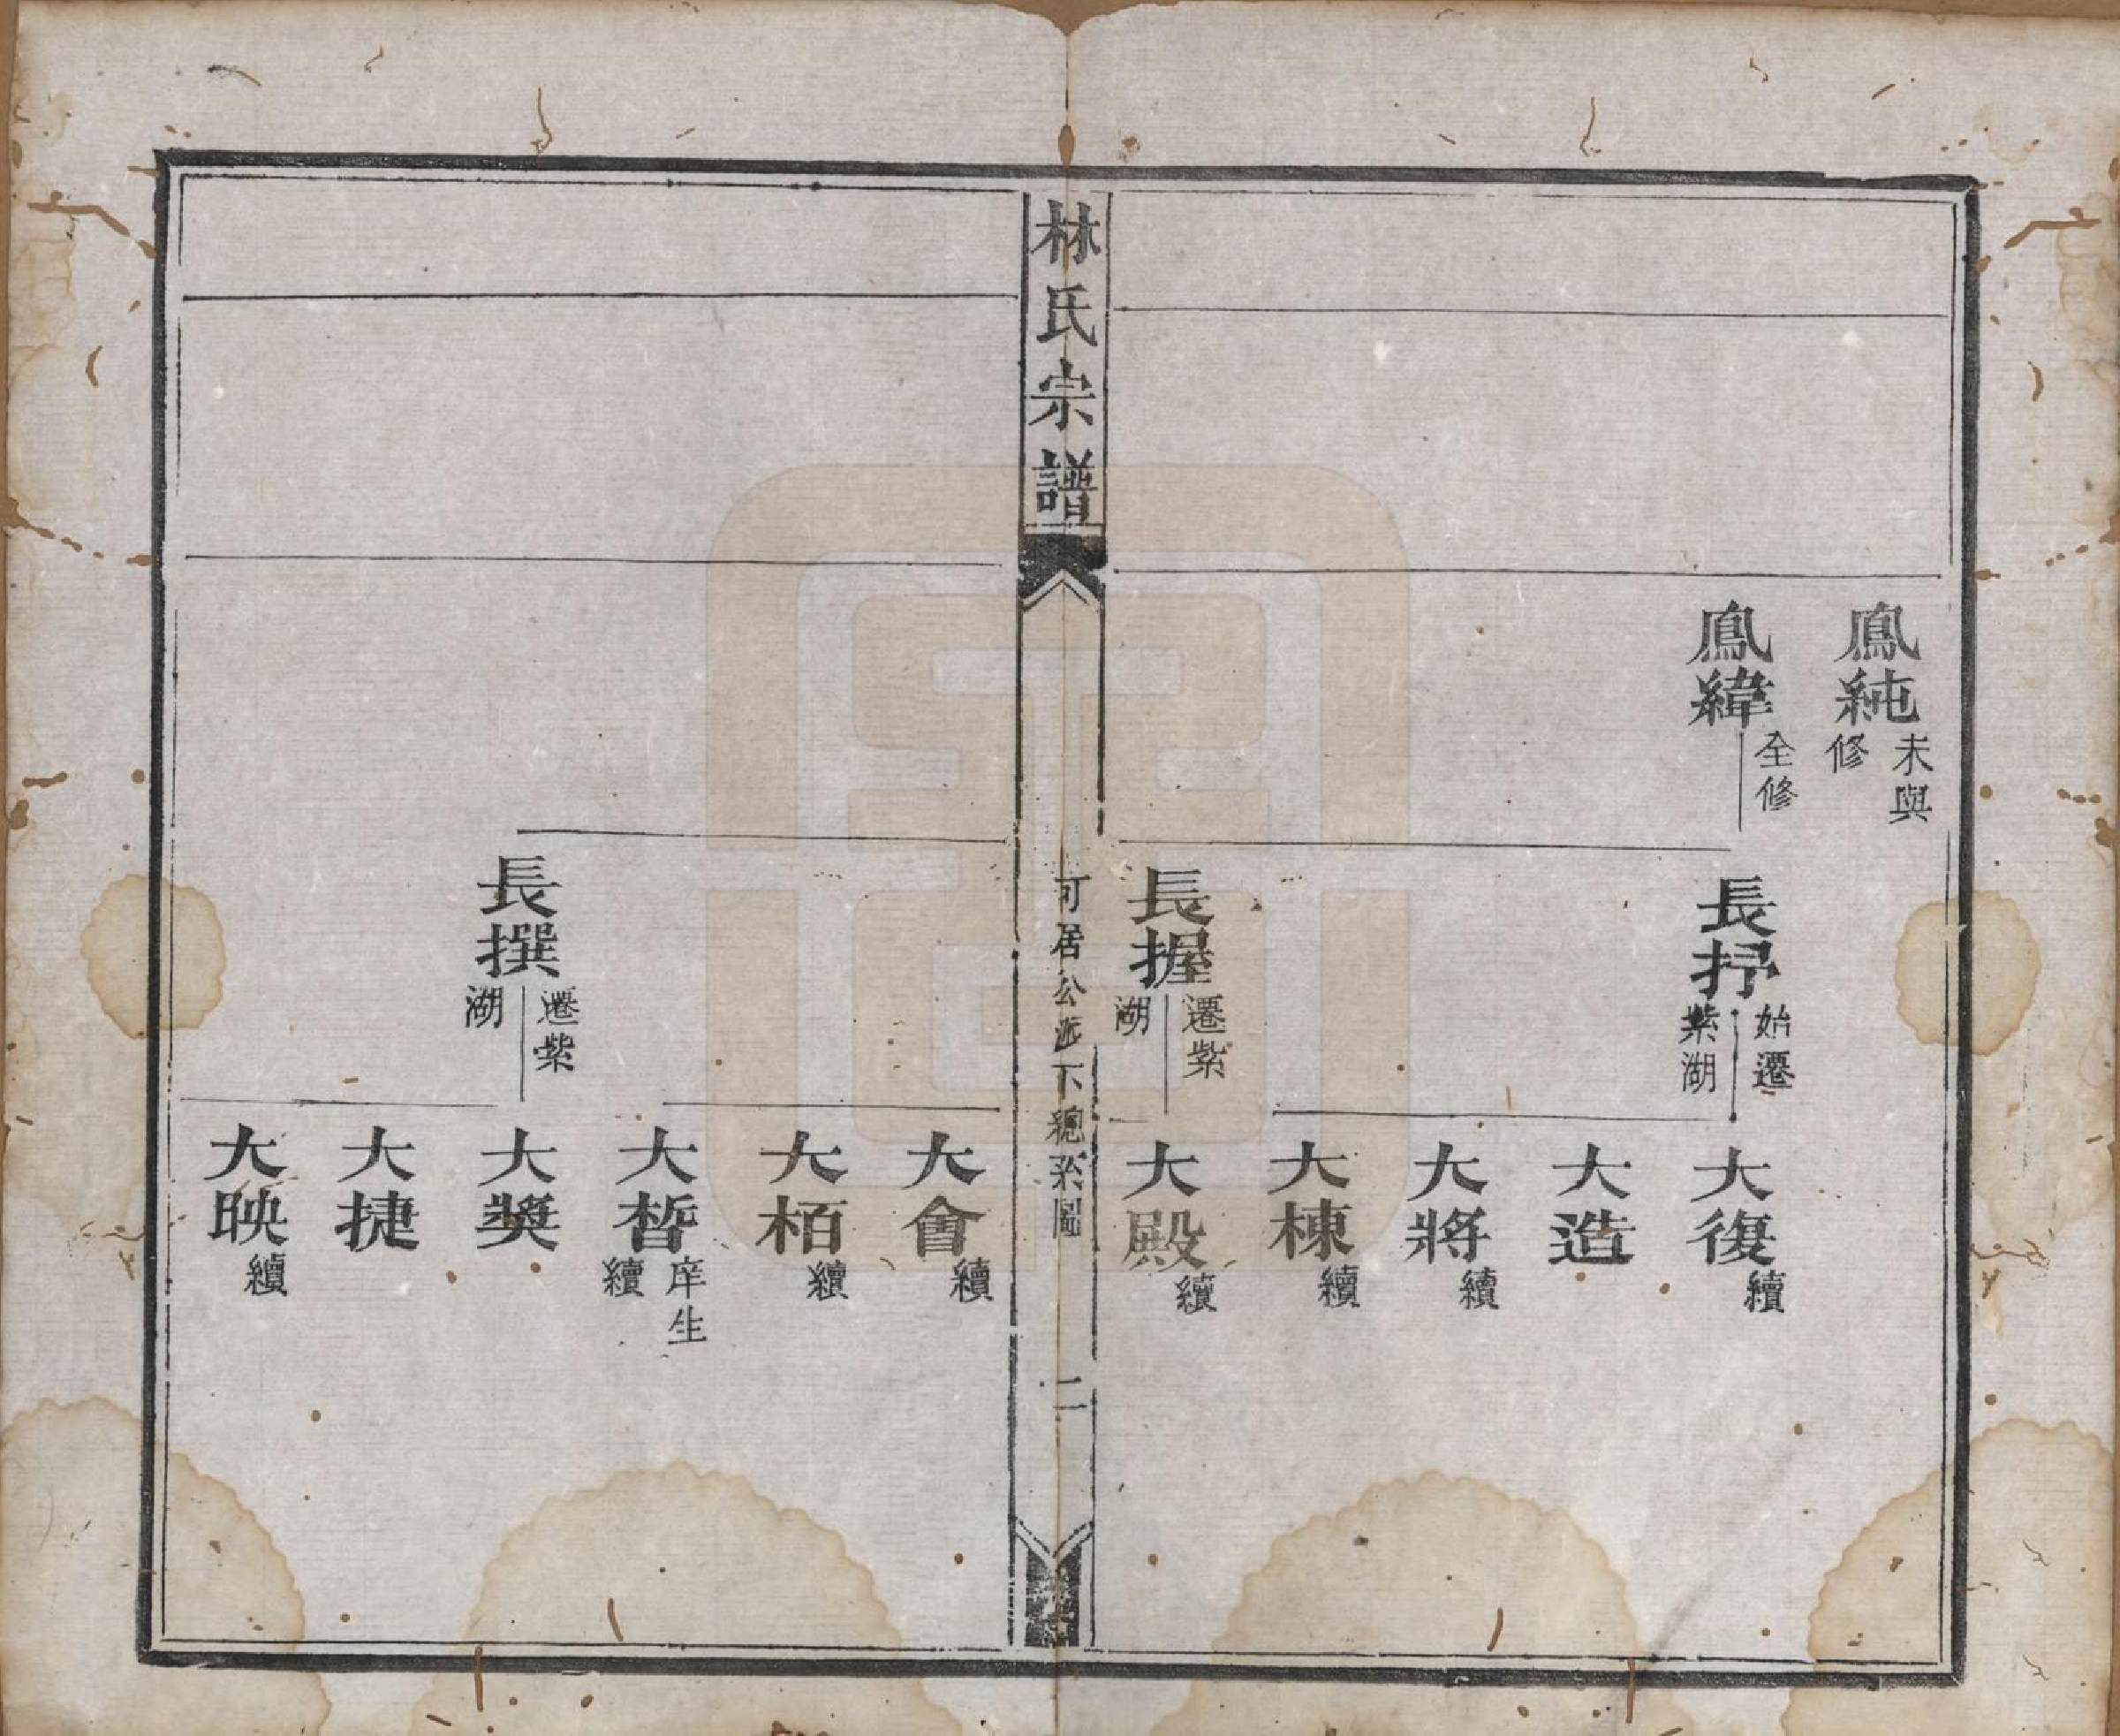 鳳純 未與修
鳳緯 全修
長抒 始遷紫湖
大復 續
大造
大將 續
大棟 續
長握 遷紫湖
大殿 續
林氏宗譜
可居公派下總系圖
二
大會 續
大栢 續
大晳 庠生 續
長撰 遷紫湖
大獎
大捷
大映 續